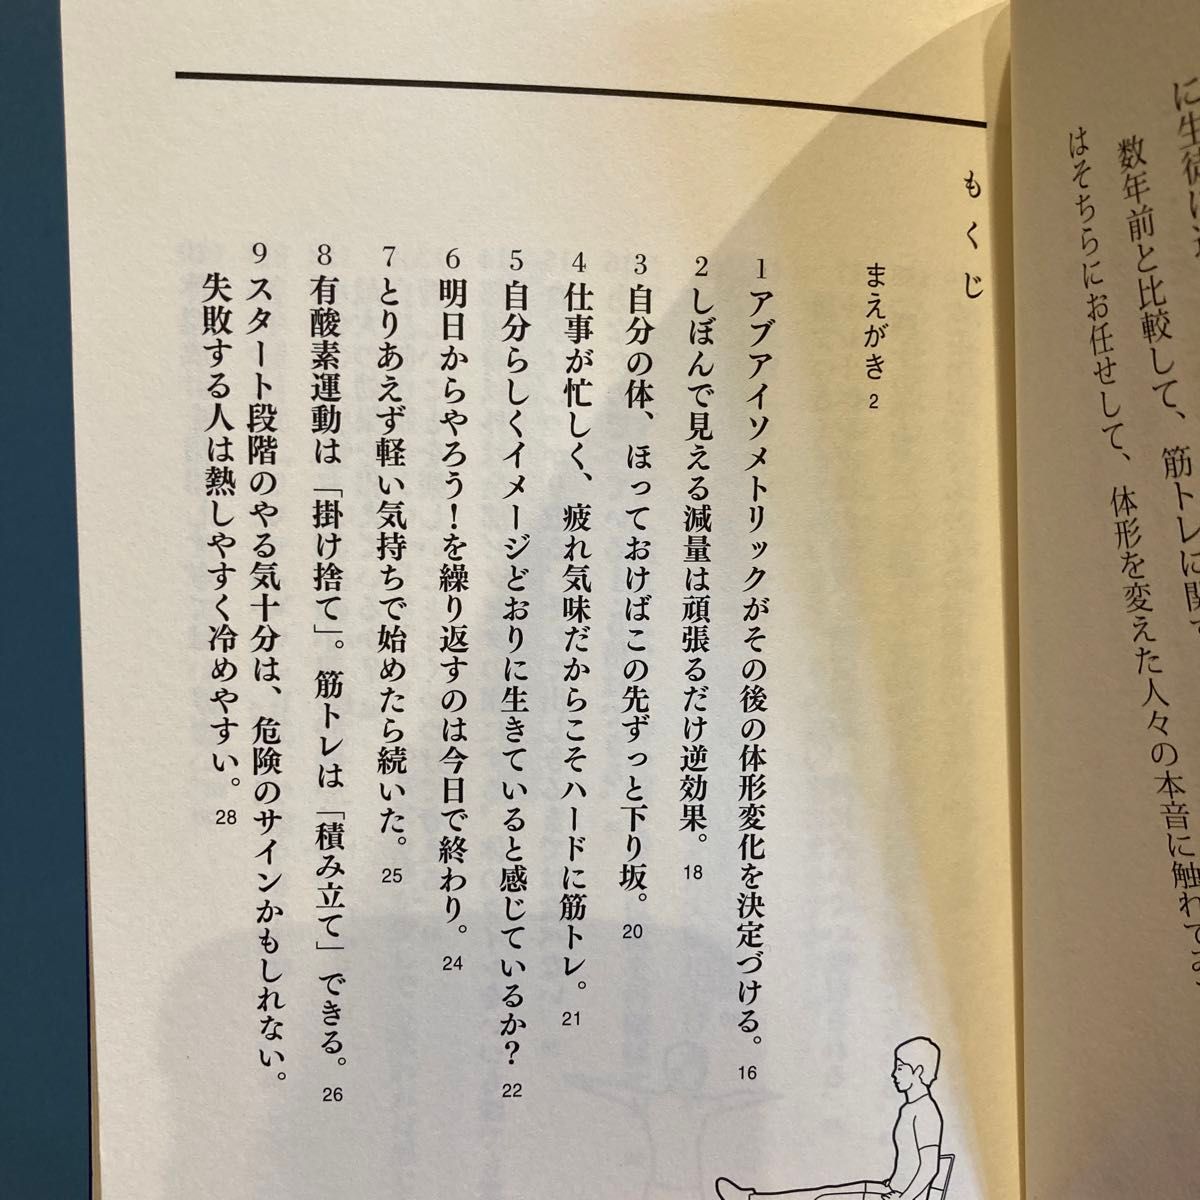 数年前と比較して、筋トレに関
はそちらにお任せして、体形を変えた人々の本音に触れてます、
もくじ
まえがき 2
1 アブアイソメトリックがその後の体形変化を決定づける。 16
2 しぼんで見える減量は頑張るだけ逆効果。 18
3 自分の体、ほっておけばこの先ずっと下り坂。 20
4 仕事が忙しく、疲れ気味だからこそハードに筋トレ。 21
5 自分らしくイメージどおりに生きていると感じているか? 22
6 明日からやろう!を繰り返すのは今日で終わり。 24
7 とりあえず軽い気持ちで始めたら続いた。 25
8 有酸素運動は「掛け捨て」。筋トレは「積み立て」できる。 26
9 スタート段階のやる気十分は、危険のサインかもしれない。
失敗する人は熱しやすく冷めやすい。 28